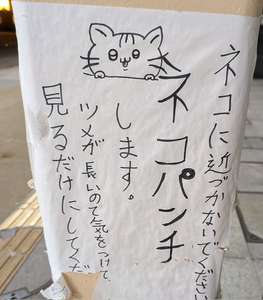 ネコに近づかないでください
ネコパンチ
します。
ツメが長いので気をつけて、
見るだけにしてくだ